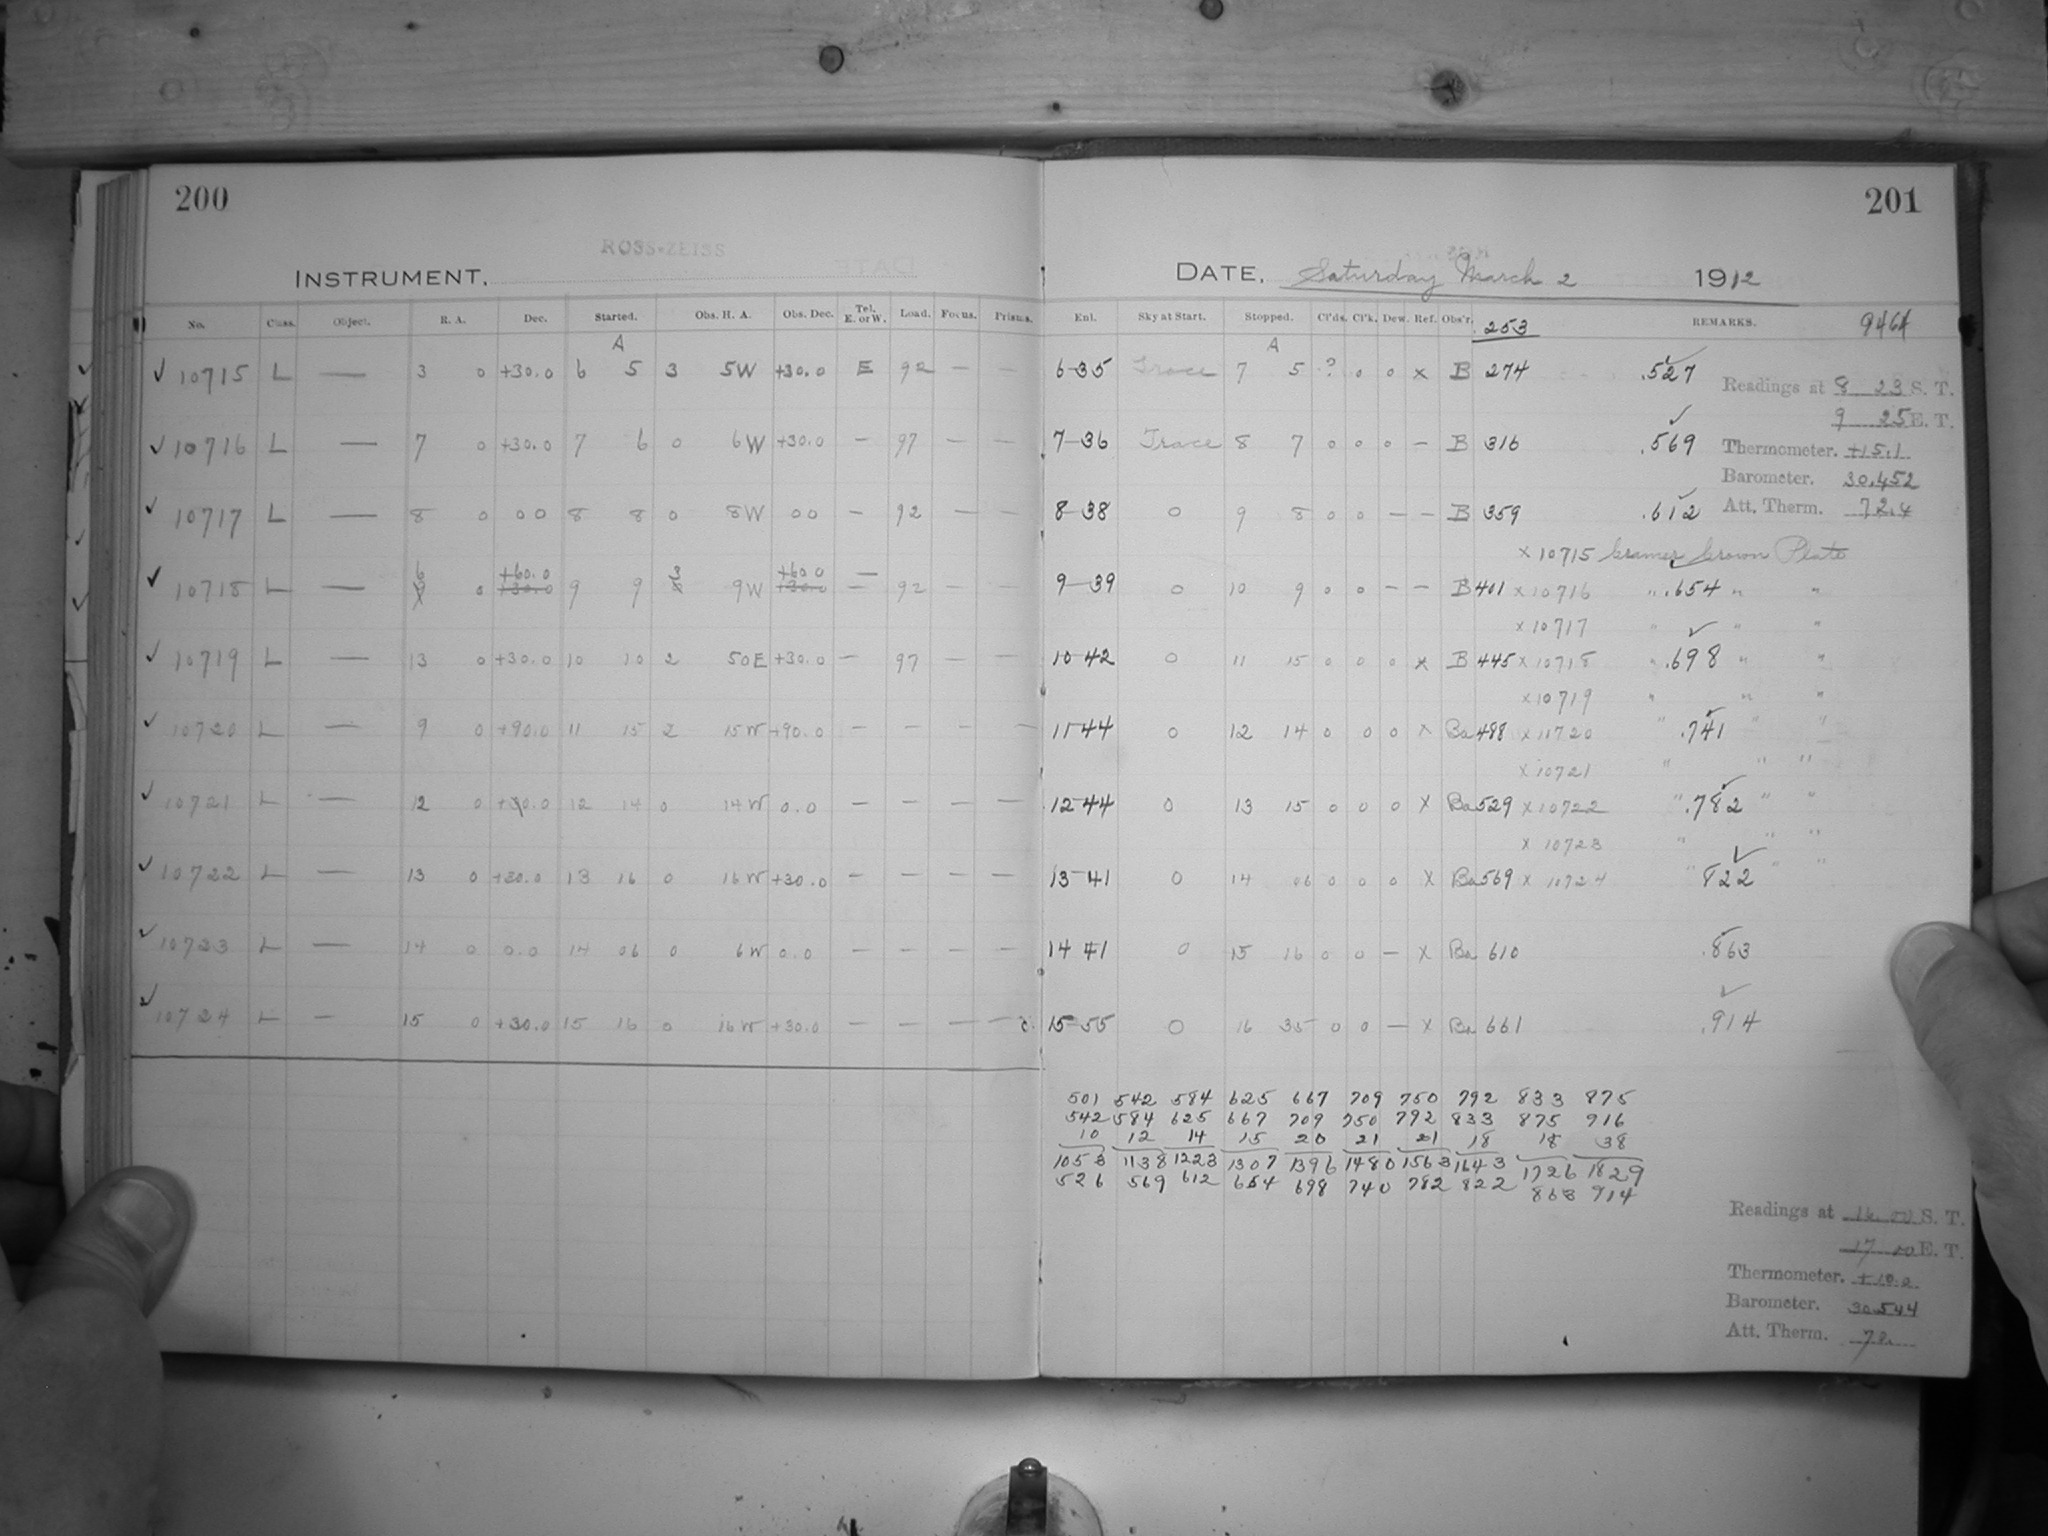 200
ROSS-ZEISS
INSTRUMENT.
No. Class. Object. R. A. Dec. Started. Obs. H. A. Obs. Dec. Tel. E. or W. Load. Focus. Prisms.
A
✓ 10715 L — 3 0 +30.0 6 5 3 5W +30.0 E 92 — —
✓ 10716 L — 7 0 +30.0 7 6 0 6W +30.0 — 97 — —
✓ 10717 L — 8 0 0 0 8 8 0 8W 0 0 — 92 — —
6 +60.0 3 +60.0 —
✓ 10718 L — 0 +30.0 9 9 9W +30.0 — 92 — —
✓ 10719 L — 13 0 +30.0 10 10 2 50E +30.0 — 97 — —
✓ 10720 L — 9 0 +90.0 11 15 2 15W +90.0 — — — —
✓ 10721 L — 12 0 0.0 12 14 0 14W 0.0 — — — —
✓ 10722 L — 13 0 +30.0 13 16 0 16W +30.0 — — — —
✓ 10723 L — 14 0 0.0 14 06 0 6W 0.0 — — — —
✓ 10724 L — 15 0 +30.0 15 16 0 16W +30.0 — — — —
201
DATE, Saturday March 2 1912
Enl. Sky at Start. Stopped. Cl'ds. Cl'k. Dew. Ref. Obs'r. 253 REMARKS. 9464
A
6-35 Trace 7 5 ? 0 0 x B 274 .527 ✓
Readings at 8 23 S. T.
9 25 E. T.
7-36 Trace 8 7 0 0 0 — B 316 .569 ✓
Thermometer. +15.1
Barometer. 30.452
8-38 0 9 8 0 0 — — B 359 .612 ✓
Att. Therm. 72.4
x 10715 Cramer Crown Plate
9-39 0 10 9 0 0 — — B 401 x 10716 " .654 " "
x 10717 " " "
10-42 0 11 15 0 0 0 x B 445 x 10718 " .698 ✓ " "
x 10719 " " "
11-44 0 12 14 0 0 0 x Ba 488 x 10720 " .741 ✓ " "
x 10721 " " "
12-44 0 13 15 0 0 0 x Ba 529 x 10722 " .782 ✓ " "
x 10723 " " "
13-41 0 14 06 0 0 0 x Ba 569 x 10724 " 822 ✓ " "
14 41 0 15 16 0 0 — x Ba 610 .863 ✓
15-55 0 16 35 0 0 — x Ba 661 .914 ✓
501 542 584 625 667 709 750 792 833 875
542 584 625 667 709 750 792 833 875 916
10 12 14 15 20 21 21 18 18 38
1053 1138 1223 1307 1396 1480 1563 1643 1726 1829
526 569 612 654 698 740 782 822 863 914
Readings at S. T.
17 E. T.
Thermometer. +10.0
Barometer. 30.544
Att. Therm. 70.